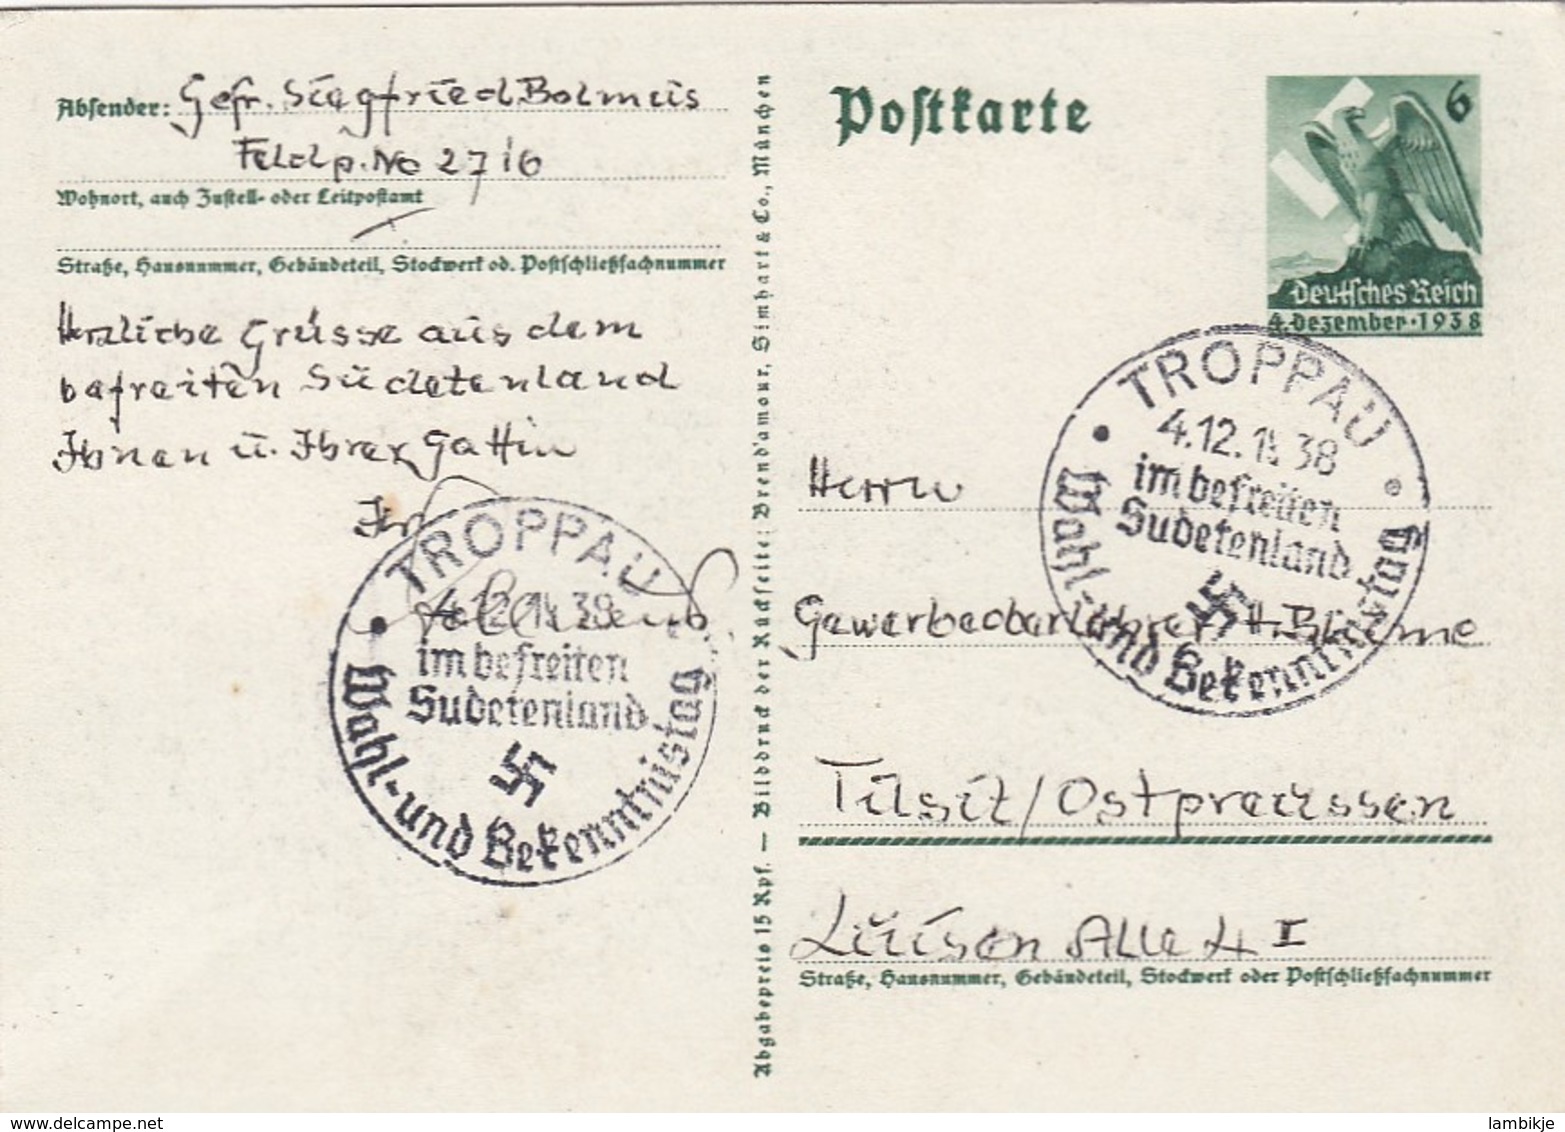 Absender: Gefr. Siegfried Bolmus
Feldp. No 2716
Wohnort, auch Zustell- oder Leitpostamt
Straße, Hausnummer, Gebäudeteil, Stockwerk od. Postschließfachnummer
Herzliche Grüsse aus dem
befreiten Sudetenland
Ihnen u. Ihrer Gattin
Ihr
TROPPAU
4.12. 38
im befreiten
Sudetenland
Wahl- und Bekenntnistag
Abgabepreis 15 Rpf. — Bilddruck der Rückseite: Brend'amour, Simhart & Co., München
Postkarte
6
Deutsches Reich
4. Dezember · 1938
TROPPAU
4.12. 38
im befreiten
Sudetenland
Wahl- und Bekenntnistag
Herrn
Gewerbeoberlehrer H. Blume
Tilsit/Ostpreussen
Luisen Alle 4 I
Straße, Hausnummer, Gebäudeteil, Stockwerk oder Postschließfachnummer
delcampe.net
lambikje